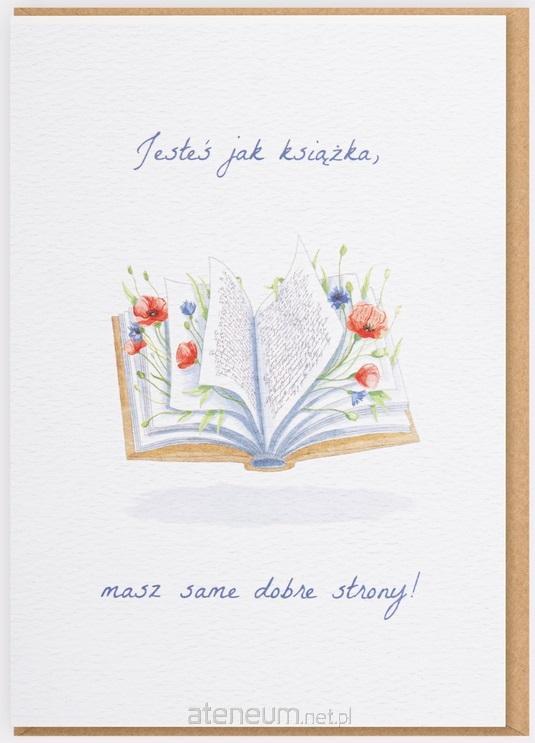 Jesteś jak książka,
masz same dobre strony!
ateneum.net.pl